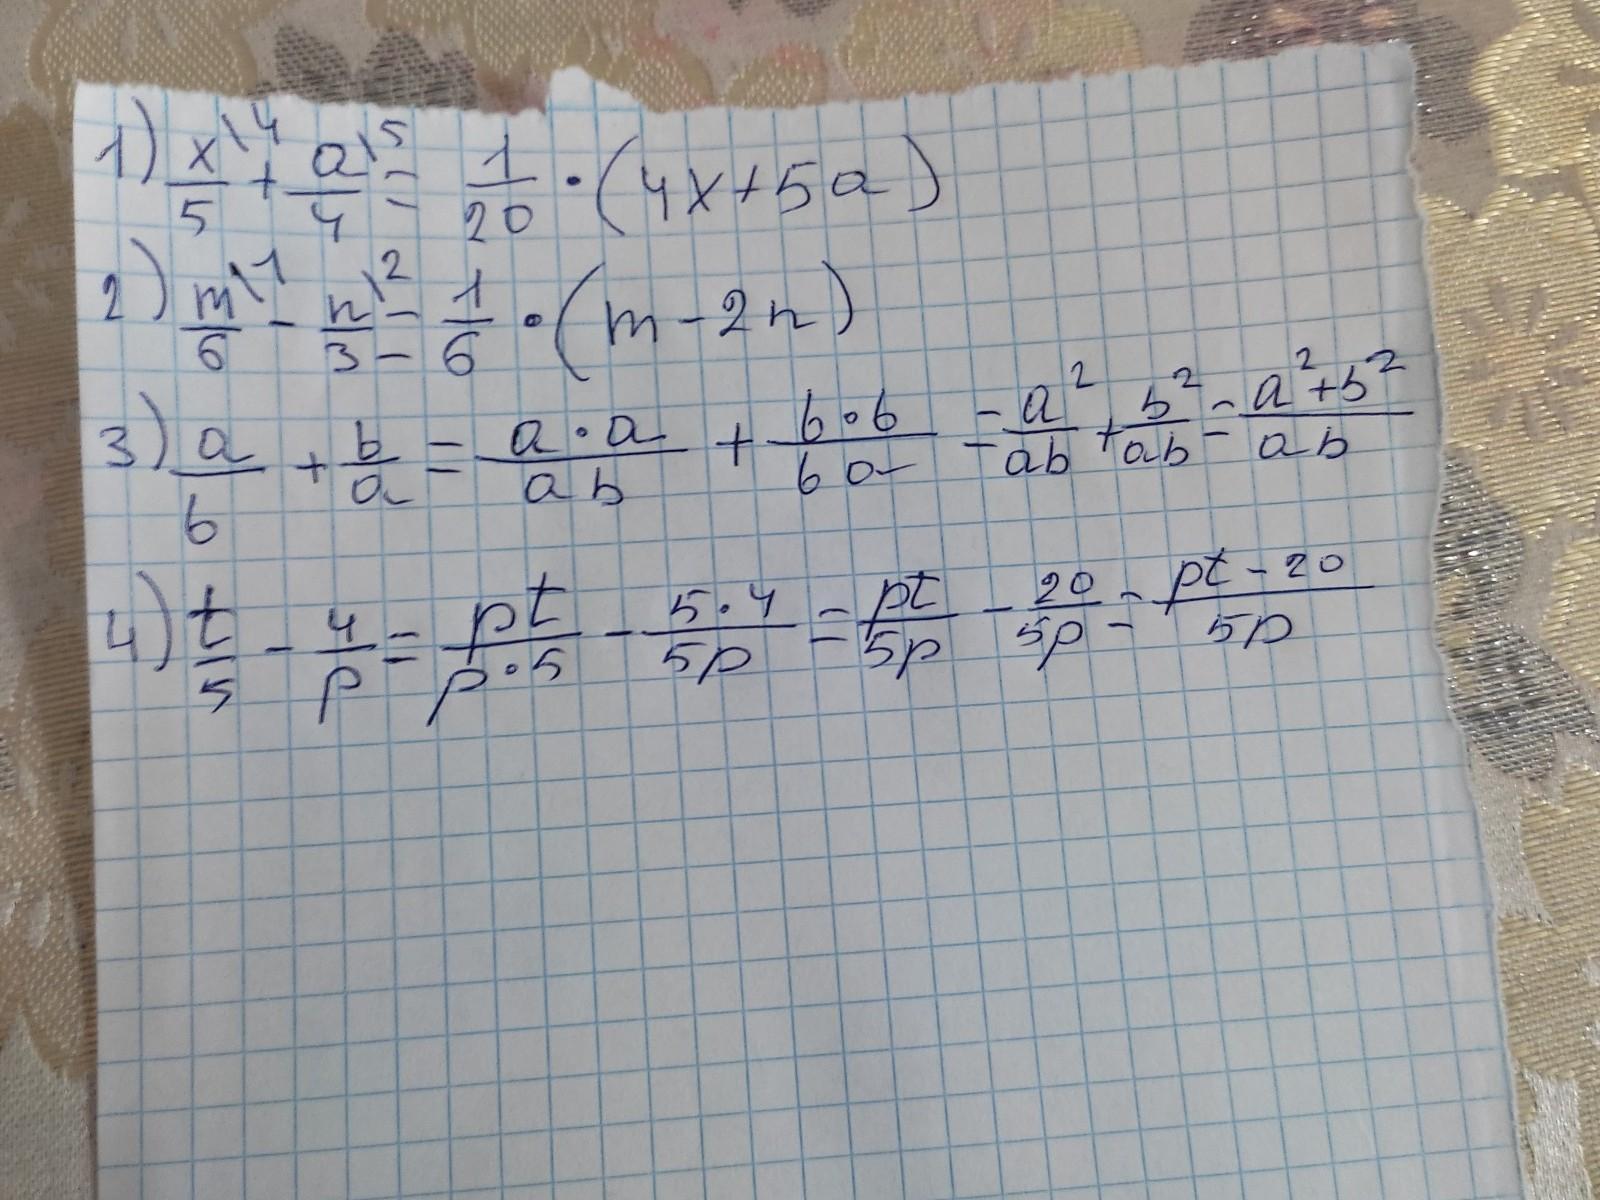 1) x\4/5 + a\5/4 = 1/20 • (4x+5a)
2) m\1/6 - n\2/3 = 1/6 • (m-2n)
3) a/b + b/a = a•a/ab + b•b/ba = a²/ab + b²/ab = a²+b²/ab
4) t/5 - 4/p = pt/p•5 - 5•4/5p = pt/5p - 20/5p = pt-20/5p